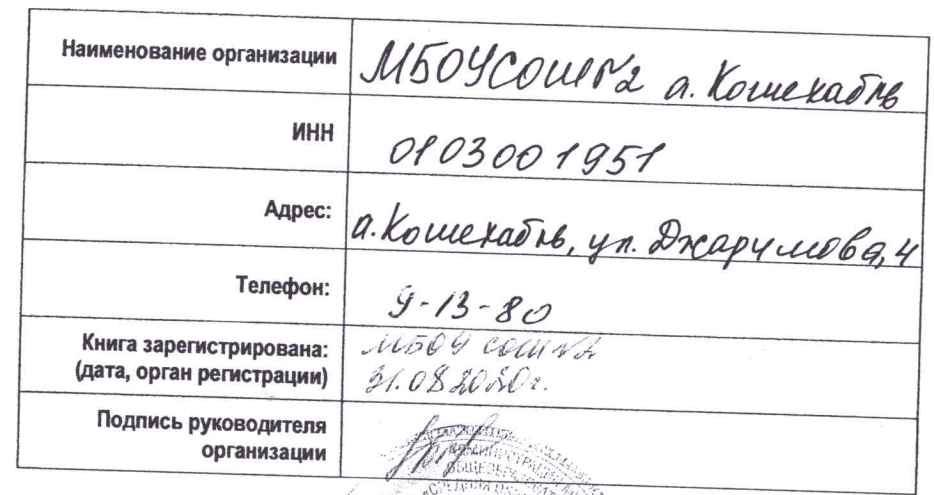 Наименование организации МБОУСОШ№2 а. Кошехабль
ИНН 0103001951
Адрес: а.Кошехабль, ул. Джаримова,4
Телефон: 9-13-80
Книга зарегистрирована: МБОУ СОШ№2
(дата, орган регистрации) 31.08.2020г.
Подпись руководителя
организации